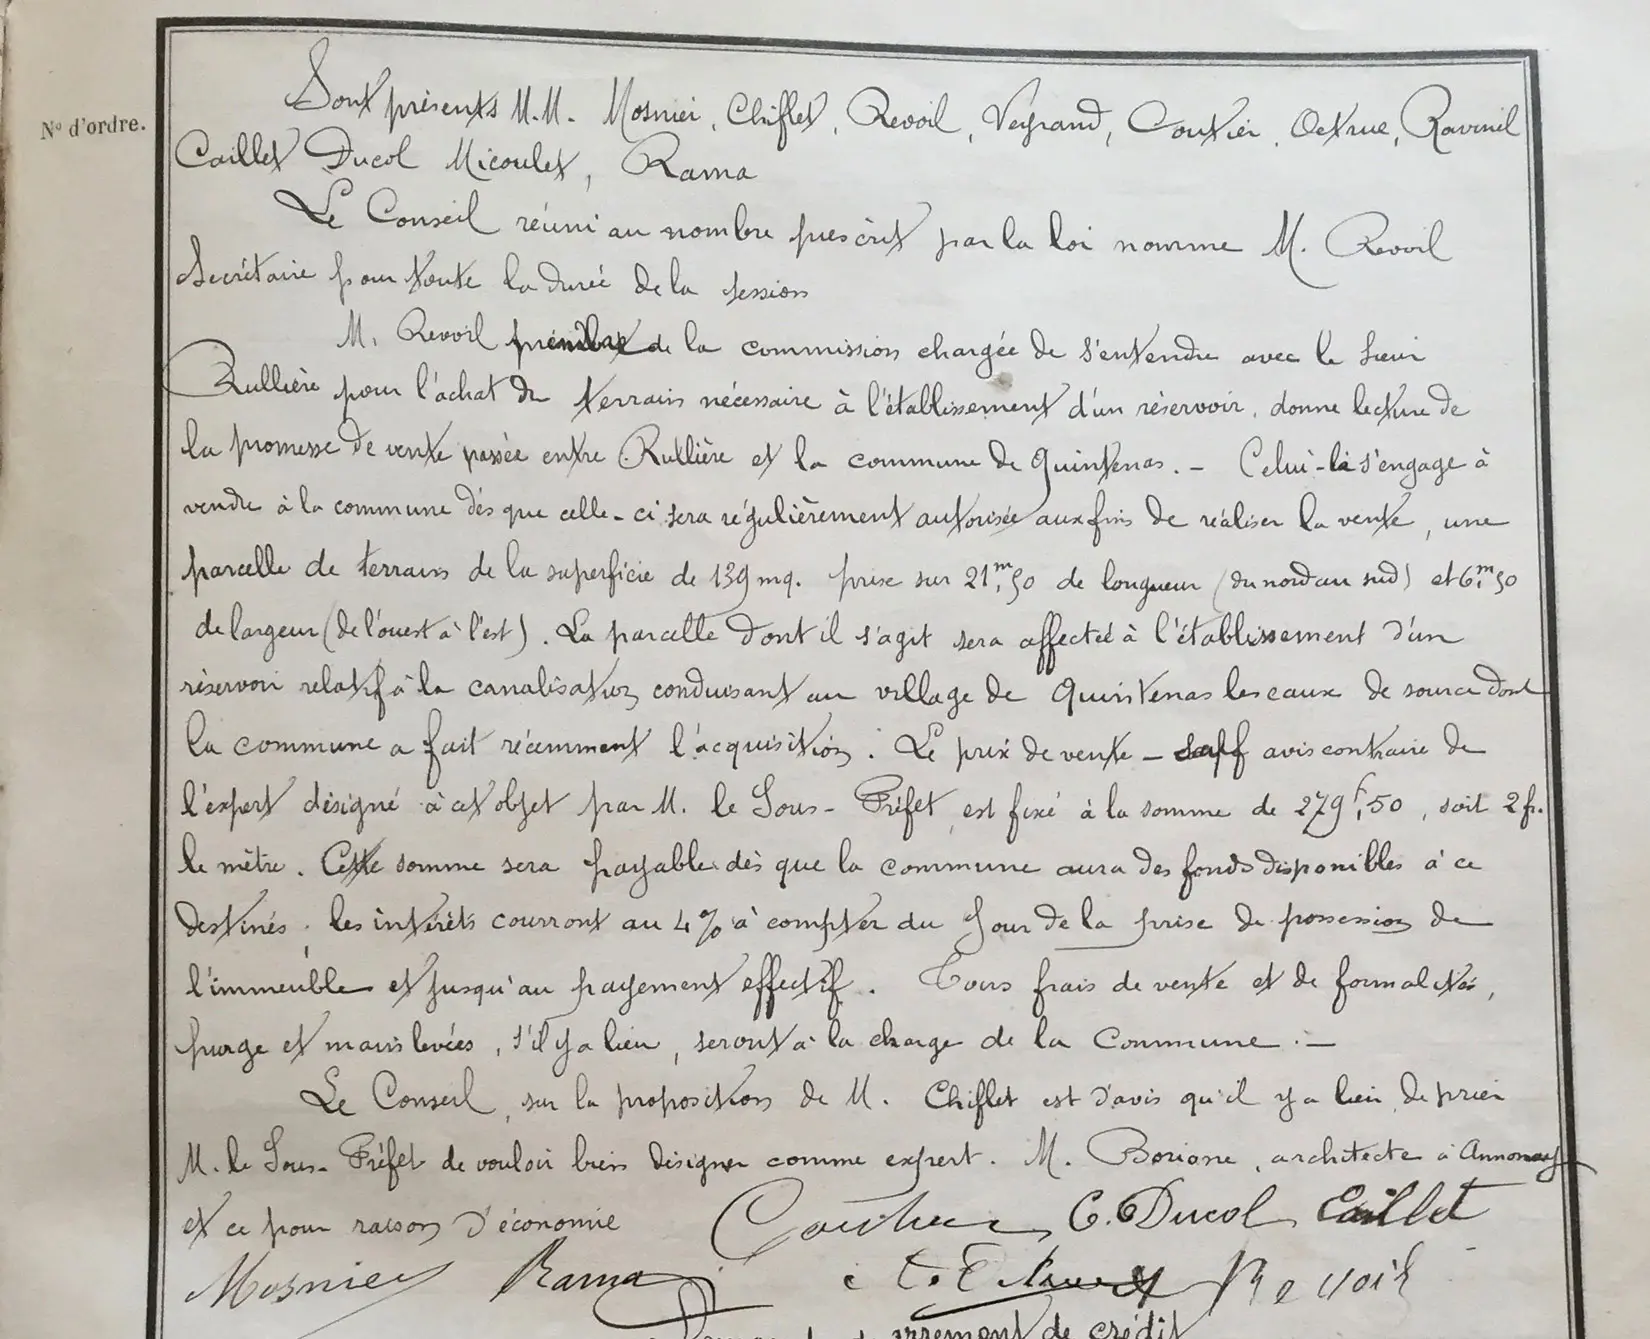 N° d'ordre.
Sont présents M.M. Mosnier, Chiflet, Revoil, Veyrand, Coutier, Octrue, Ravinel
Caillet Ducol Micoulet, Rama
Le Conseil réuni au nombre prescrit par la loi nomme M. Revoil
Secrétaire pour toute la durée de la session
M. Revoil membre de la commission chargée de s'entendre avec le sieur
Rullière pour l'achat du terrain nécessaire à l'établissement d'un réservoir, donne lecture de
la promesse de vente passée entre Rullière et la commune de Quintenas. – Celui-là s'engage à
vendre à la commune dès que celle-ci sera régulièrement autorisée aux fins de réaliser la vente, une
parcelle de terrain de la superficie de 139 mq. prise sur 21,m50 de longueur (du nord au sud) et 6,m50
de largeur (de l'ouest à l'est). La parcelle dont il s'agit sera affectée à l'établissement d'un
réservoir relatif à la canalisation conduisant au village de Quintenas les eaux de source dont
la commune a fait récemment l'acquisition. Le prix de vente – sauf avis contraire de
l'expert désigné à cet objet par M. le Sous-Préfet, est fixé à la somme de 279f,50, soit 2 fr.
le mètre. Cette somme sera payable dès que la commune aura des fonds disponibles à ce
destinés; les intérêts courront au 4% à compter du jour de la prise de possession de
l'immeuble et jusqu'au payement effectif. Tous frais de vente et de formalités,
purge et mainlevées, s'il y a lieu, seront à la charge de la Commune. –
Le Conseil, sur la proposition de M. Chiflet est d'avis qu'il y a lieu de prier
M. le Sous-Préfet de vouloir bien désigner comme expert. M. Borione, architecte à Annonay
et ce pour raison d'économie C. Ducol Caillet
Mosnier Rama Revoil
de crédit